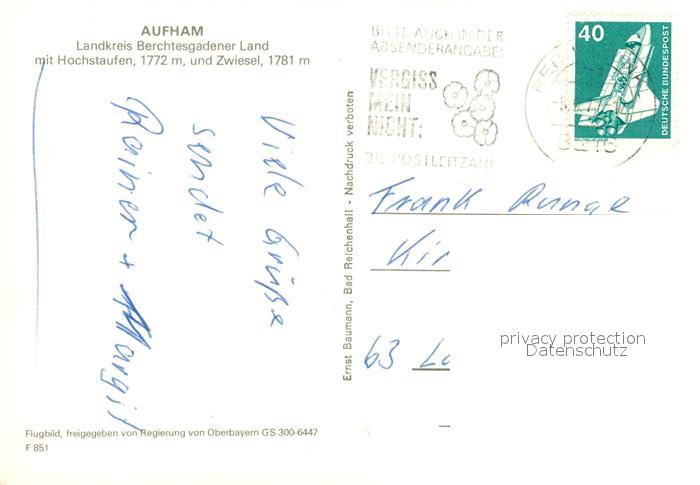 AUFHAM
Landkreis Berchtesgadener Land
mit Hochstaufen, 1772 m, und Zwiesel, 1781 m
Viele Grüße
sendet
Rainer + Margit
Flugbild, freigegeben von Regierung von Oberbayern GS 300-6447
F 851
Ernst Baumann, Bad Reichenhall - Nachdruck verboten
BITTE AUCH IN DER
ABSENDERANGABE:
VERGISS
MEIN
NICHT:
DIE POSTLEITZAHL
40
DEUTSCHE BUNDESPOST
Frank Runge
Kir
63 La
privacy protection
Datenschutz